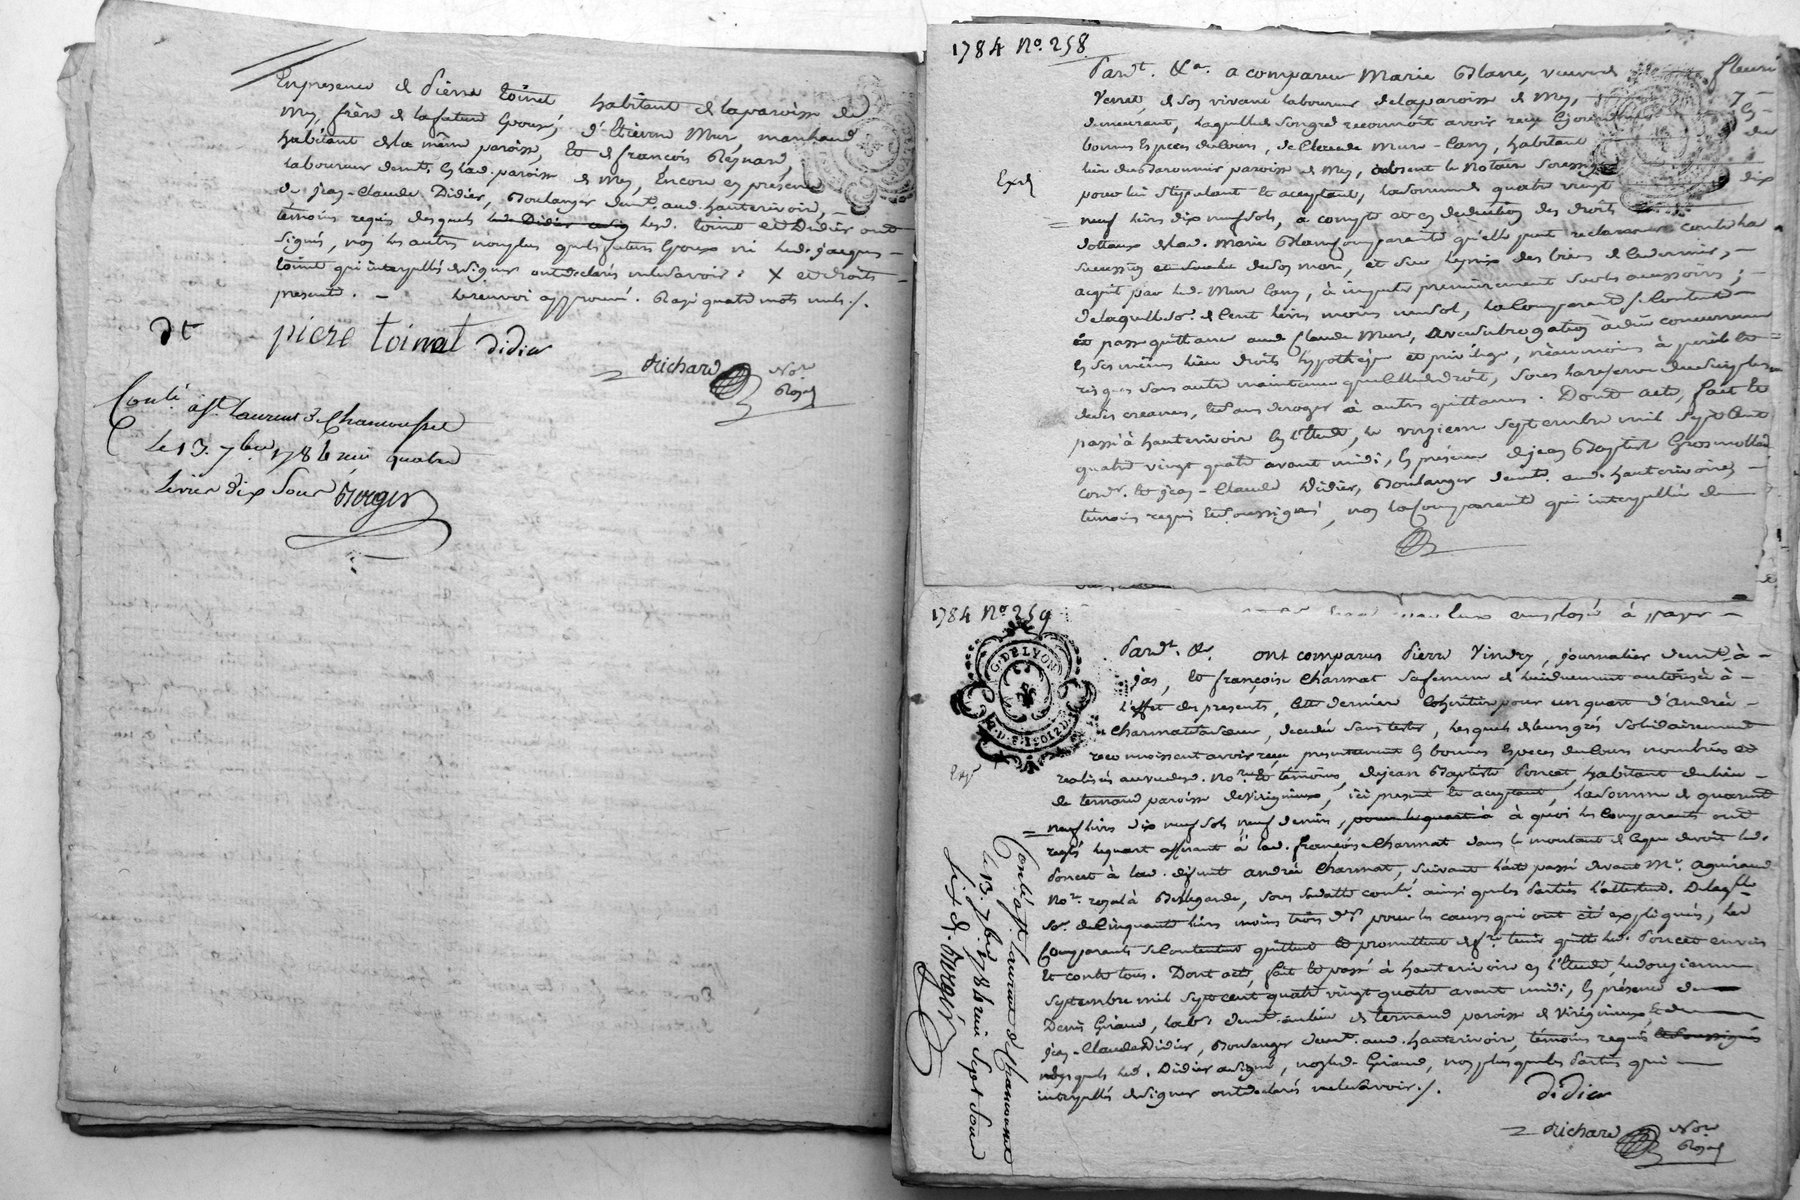 En presence de Pierre toinet habitant de la paroisse de
Mey, frère de la future Epouse, d'Etienne Mur, marchand
habitant de la même paroisse, Et de françois Reynard,
laboureur demt. En lad. paroisse de Mey, Encore en présence
de jean-Claude Didier, Boulanger demt. aud. hauterivoire,
témoins requis desquels led. toinet et Didier ont
signés, non les autres non plus que les futurs Epoux ni led. jacques
toinet qui interpellés de signer ont declarés ne le savoir. X et droits
presents. - le renvoi approuvé. Rayé quatre mots nuls ./.
dt piere toinet didier
Richard Nore
Royal
Conlé. à St. Laurent de Chamousset
Le 13. 7bre 1784 reçu quatre
livres dix sous Borger
1784 No. 258
Pardt. &a. a comparu Marie Blanc, veuve de fleuri
Verret, de son vivant laboureur de la paroisse de Mey,
demeurant, laquelle de son gré reconnoit avoir reçu
bonnes Especes du Cours, de Claude Mur-Cany, habitant du
lieu des Baronnier paroisse de Mey, absent le Notaire Soussigné
Exp
pour lui Stipulant et aceptant, la somme de quatre vingt dix
neuf livres dix neuf sols, à compte et en deduction des droits
dottaux de lad. Marie Blanc comparante qu'elle peut reclamer contre la
succession de son mari, et sur le prix des biens de ce dernier,
acquit par led. Mur Cany, à imputer premierement sur les accessoires;
de laquelle So. de Cent livres moins un sol, la Comparante se Contente
et passe quittance aud. Claude Mur, avec subrogation à due concurrence
En ses mêmes lieu droits hypothèque et privilège, néanmoins à perils et
risques sans autre maintenue que celle de droit, sous la reserve du surplus
de ses creances, Et sans deroger à autres quittances. Dont acte, fait Et
passé à hauterivoire En l'Etude, le onzieme septembre mil sept Cent
quatre vingt quatre avant midi, En présence de jean Baptiste Grosmollard
cordr. Et jean-Claude Didier, Boulanger demt. aud. hauterivoire,
témoins requis Et soussignés, non la Comparante qui interpellée de
1784 No. 259
G. DE LYON
Pardt. &a. ont comparus Pierre Vindry, journalier demt. à
jas, Et françoise Charmat sa femme de lui duement autorisée à
l'effet des presents, cette derniere Cohéritiere pour un quart d'André
Charmat sa sœur, decedé sans tester, lesquels de leurs grés solidairement
reconnoissent avoir reçu presentement En bonnes Especes du Cours nombrées et
Exp
realisés au vu desd. Nore. Et témoins, de jean Baptiste Poncet, habitant du lieu
de ternand paroisse de Virigneux, ici present Et aceptant, la somme de quarante
neuf livres dix neuf sols neuf deniers, pour le quart à à quoi les Comparants ont
reglés le quart afferant à lad. françoise Charmat dans le montant de ce que devoit led.
Poncet à lad. defunt andrée Charmat, suivant l'acte passé devant Me. aguiraud
Nore. royal à Bellegarde, sous sa datte conlé. ainsi que les Parties l'attestent. De laqlle.
So. de Cinquante livres moins trois drs. pour les causes qui ont été expliqués, les
Comparants se Contentent quittent et promettent de fre. tenir quitte led. Poncet envers
Et contre tous. Dont acte, fait Et passé à hauterivoire En l'Etude, le onzieme
septembre mil sept cent quatre vingt quatre avant midi, En présence de
Denis Giraud, labr. demt. au lieu de ternand paroisse de Virigneux, Et de
jean-Claude Didier, Boulanger demt. aud. hauterivoire, témoins requis et soussignés
desquels led. Didier a signé, non led. Giraud, non plus que les Parties qui
interpellés de signer ont declarés ne le savoir ./.
didier
Richard Nore
Royal
Conlé. à St. Laurent de Chamousset
le 13. 7bre 1784 reçu Sept Sous
Six d. Borger